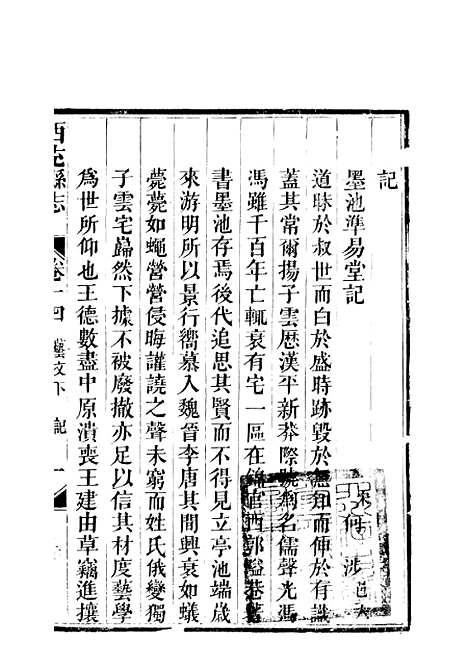 記
墨池準易堂記
何 涉 邑人
道晦於叔世而白於盛時跡毀於無知而伸於有識
蓋其常爾揚子雲歷漢平新莽際號爲名儒聲光馮
馮雖千百年亡輒衰有宅一區在錦官西郭隘巷著
書墨池存焉後代追思其賢而不得見立亭池端歲
來游明所以景行嚮慕入魏晉李唐其間興衰如蟻
薨薨如蠅營營侵晦讙譊之聲未窮而姓氏俄變獨
子雲宅巋然下據不被廢撤亦足以信其材度藝學
爲世所仰也王德數盡中原潰喪王建由草竊進攘
西充縣志 卷十四 藝文下 記 一